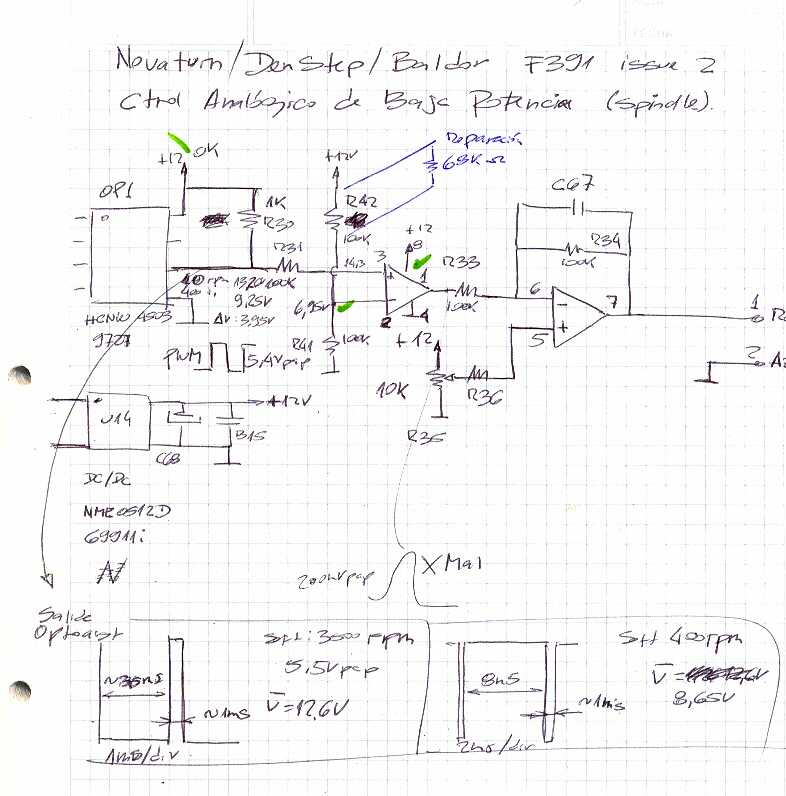 Novaturn/DenStep/Baldor F391 issue 2
Ctrol Analógico de Baja Potencia (Spindle).
+12 OK
OP1
1K
R30
R31
100K
+12V
R42
100K
Reparación
68K Ω
C67
R34
100K
+12
8
14,3
3
1
R33
100K
6
7
5
1
2
13,20
9,25V
ΔV: 3,95V
6,95V
2
4
R41
100K
HCNW 4503
9727
PWM
5,4Vpap
+12
10K
R36
R35
U14
+12V
C68
B15
DC/DC
NME0512D
69911i
200mVpap
X Mal
Salida
Optoacopl
1ms/div
~1ms
Sft: 3500 rpm
5,5Vpap
V=12,6V
8mS
~1ms
2ms/div
Sft 400rpm
V=
8,65V